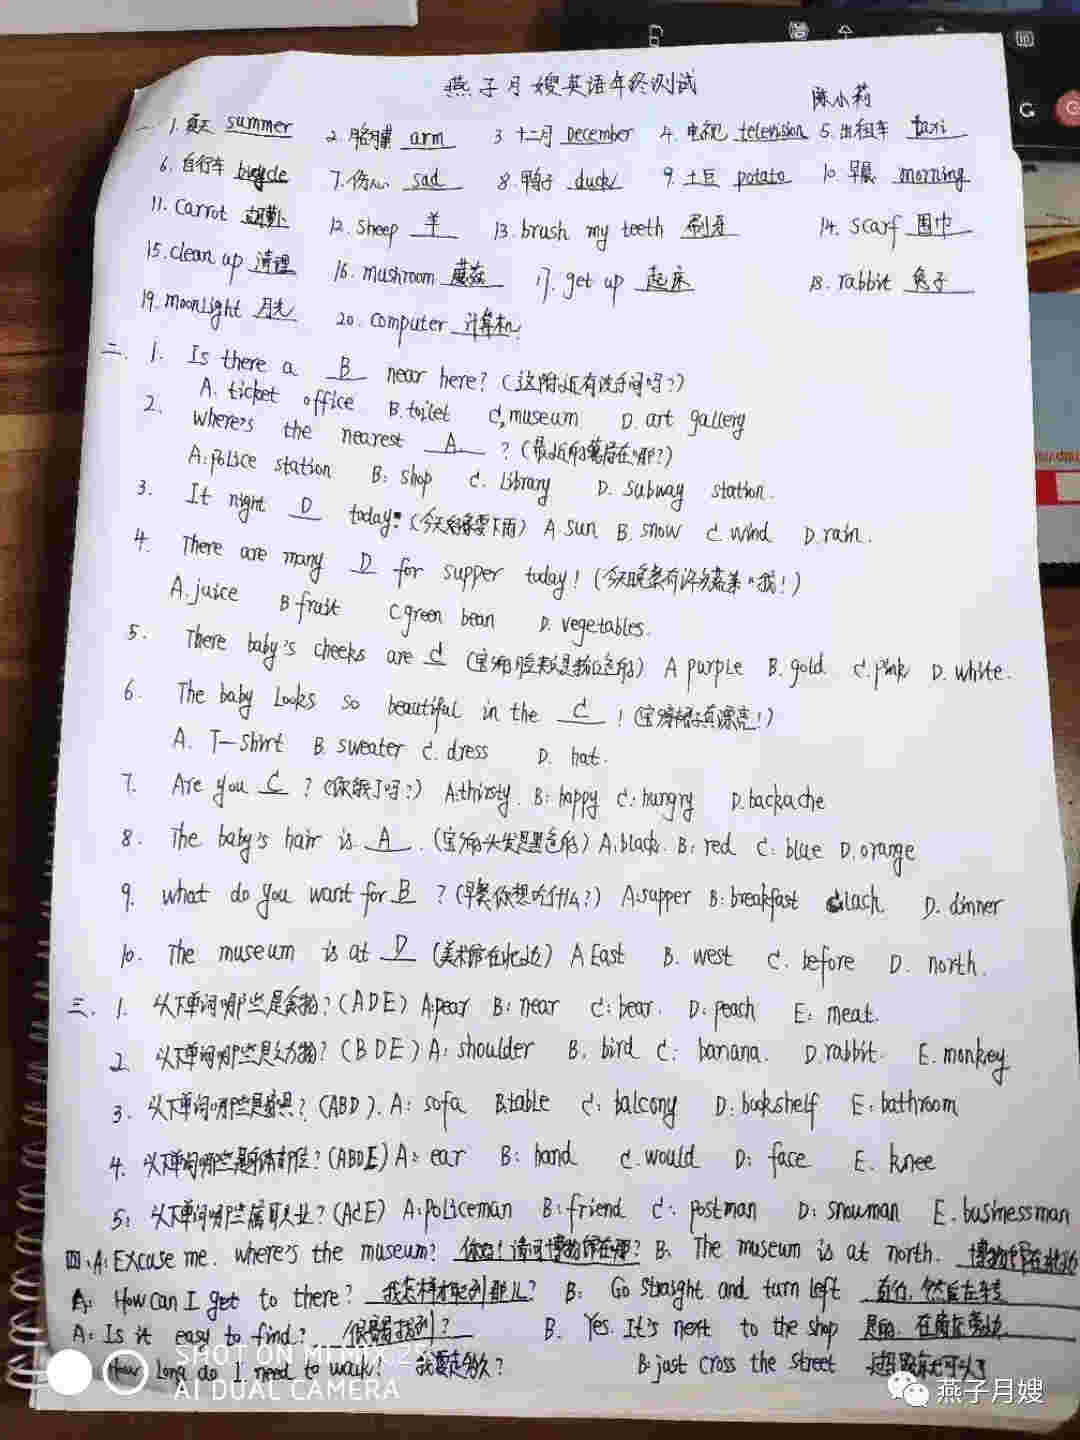 燕子月嫂英语年终测试
陈小莉
一、1.夏天 summer 2.胳膊 arm 3 十二月 December 4. 电视 television 5.出租车 taxi
6.自行车 bicycle 7.伤心 sad 8.鸭子 duck 9.土豆 potato 10.早晨 morning
11.Carrot 胡萝卜 12.Sheep 羊 13.brush my teeth 刷牙 14.Scarf 围巾
15.clean up 清理 16.mushroom 蘑菇 17.get up 起床 18.rabbit 兔子
19.Moonlight 月光 20.computer 计算机
二、1. Is there a B near here?(这附近有洗手间吗?)
A.ticket office B.toilet C.museum D.art gallery
2. where's the nearest A ?(最近的警局在哪?)
A:police station B:shop C.library D.subway station.
3. It night D today.(今天需要下雨) A sun B.snow C wind D.rain.
4. There are many D for supper today!(今天晚餐有许多蔬菜!)
A.juice B fruit C green bean D.vegetables.
5. There baby's cheeks are C (宝宝的脸颊是粉红色的) A purple B.gold C.pink D.white.
6. The baby Looks so beautiful in the C !(宝宝裙子真漂亮!)
A. T-shirt B sweater C.dress D. hat.
7. Are you C ?(你饿了吗?) A:thirsty. B:happy C:hungry D.backache
8. The baby's hair is A .(宝宝的头发是黑色的) A:black. B:red C:blue D.orange
9. what do you want for B ?(早餐你想吃什么?) A:supper B:breakfast C:lach. D.dinner
10. The museum is at D (美术馆在北边) A East B. west C. before D. north.
三、1. 以下单词哪些是食物?(ADE) A:pear B:near C:bear. D:peach E:meat.
2. 以下单词哪些是动物?(BDE) A:shoulder B.bird C:banana. D.rabbit. E.monkey
3. 以下单词哪些是家具?(ABD). A:sofa B:table C:balcony D:bookshelf E:bathroom
4. 以下单词哪些是身体部位?(ABDE) A:ear B:hand C.would D:face E.knee
5: 以下单词哪些属于职业?(ACE) A:policeman B:friend C:postman D:snowman E.businessman
四、A:Excuse me. where's the museum? 你好!请问博物馆在哪? B: The museum is at north. 博物馆在北边
A: How can I get to there? 我怎样才能到那儿? B: Go straight and turn left 直行,然后左转
A:Is it easy to find? 很容易找到? B. Yes. It's next to the shop 是的,在商店旁边
How long do I need to walk? 我要走多久? B:just cross the street
SHOT ON MI MIX 2S
AI DUAL CAMERA
燕子月嫂